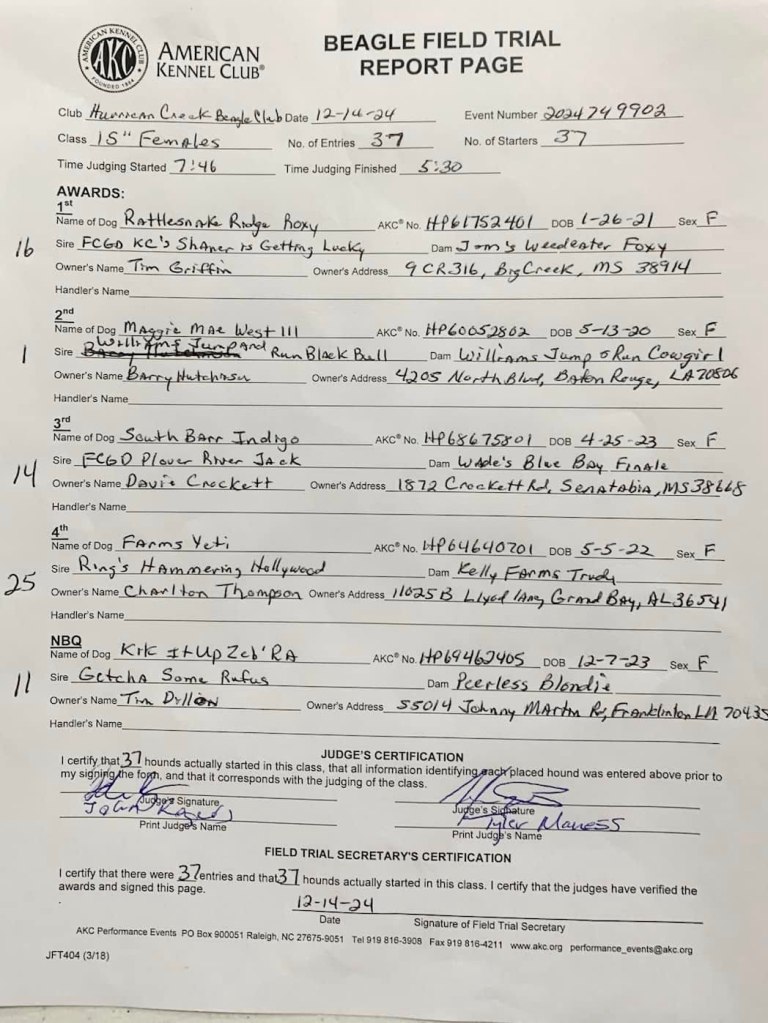 AMERICAN KENNEL CLUB
AKC
FOUNDED 1884
AMERICAN
KENNEL CLUB®
BEAGLE FIELD TRIAL
REPORT PAGE
Club Hurrican Creek Beagle Club Date 12-14-24 Event Number 2024749902
Class 15" Females No. of Entries 37 No. of Starters 37
Time Judging Started 7:46 Time Judging Finished 5:30
AWARDS:
1st
Name of Dog Rattlesnake Ridge Roxy AKC® No. HP61752401 DOB 1-26-21 Sex F
16 Sire FCGD KC's Shaner is Getting Lucky Dam Jom's Weedeater Foxy
Owner's Name Tim Griffin Owner's Address 9 CR316, Big Creek, MS 38914
Handler's Name
2nd
Name of Dog Maggie Mae West III AKC® No. HP60052802 DOB 5-13-20 Sex F
1 Sire Williams Jump and Run Black Bull Dam Williams Jump & Run Cowgirl
Owner's Name Barry Hutchison Owner's Address 4205 North Blvd, Baton Rouge, LA 70806
Handler's Name
3rd
Name of Dog South Barr Indigo AKC® No. HP68675801 DOB 4-25-23 Sex F
14 Sire FCGD Plover River Jack Dam Wade's Blue Bay Finale
Owner's Name Davie Crockett Owner's Address 1872 Crockett Rd, Senatabia, MS 38668
Handler's Name
4th
Name of Dog Farms Yeti AKC® No. HP64640701 DOB 5-5-22 Sex F
25 Sire Ring's Hammering Hollywood Dam Kelly Farms Trudy
Owner's Name Charlton Thompson Owner's Address 11025 B Grand Bay, AL 36541
Handler's Name
NBQ
Name of Dog Kik It Up Zeb'RA AKC® No. HP69462405 DOB 12-7-23 Sex F
11 Sire Getcha Some Rufus Dam Peerless Blondie
Owner's Name Tim Dillon Owner's Address 55014 Johnny Martin Rd, Franklinton LA 70435
Handler's Name
JUDGE'S CERTIFICATION
I certify that 37 hounds actually started in this class, that all information identifying each placed hound was entered above prior to
my signing the form, and that it corresponds with the judging of the class.
Judge's Signature Judge's Signature
John Tyler Maness
Print Judge's Name Print Judge's Name
FIELD TRIAL SECRETARY'S CERTIFICATION
I certify that there were 37 entries and that 37 hounds actually started in this class. I certify that the judges have verified the
awards and signed this page.
12-14-24
Date Signature of Field Trial Secretary
AKC Performance Events PO Box 900051 Raleigh, NC 27675-9051 Tel 919 816-3908 Fax 919 816-4211 www.akc.org performance_events@akc.org
JFT404 (3/18)